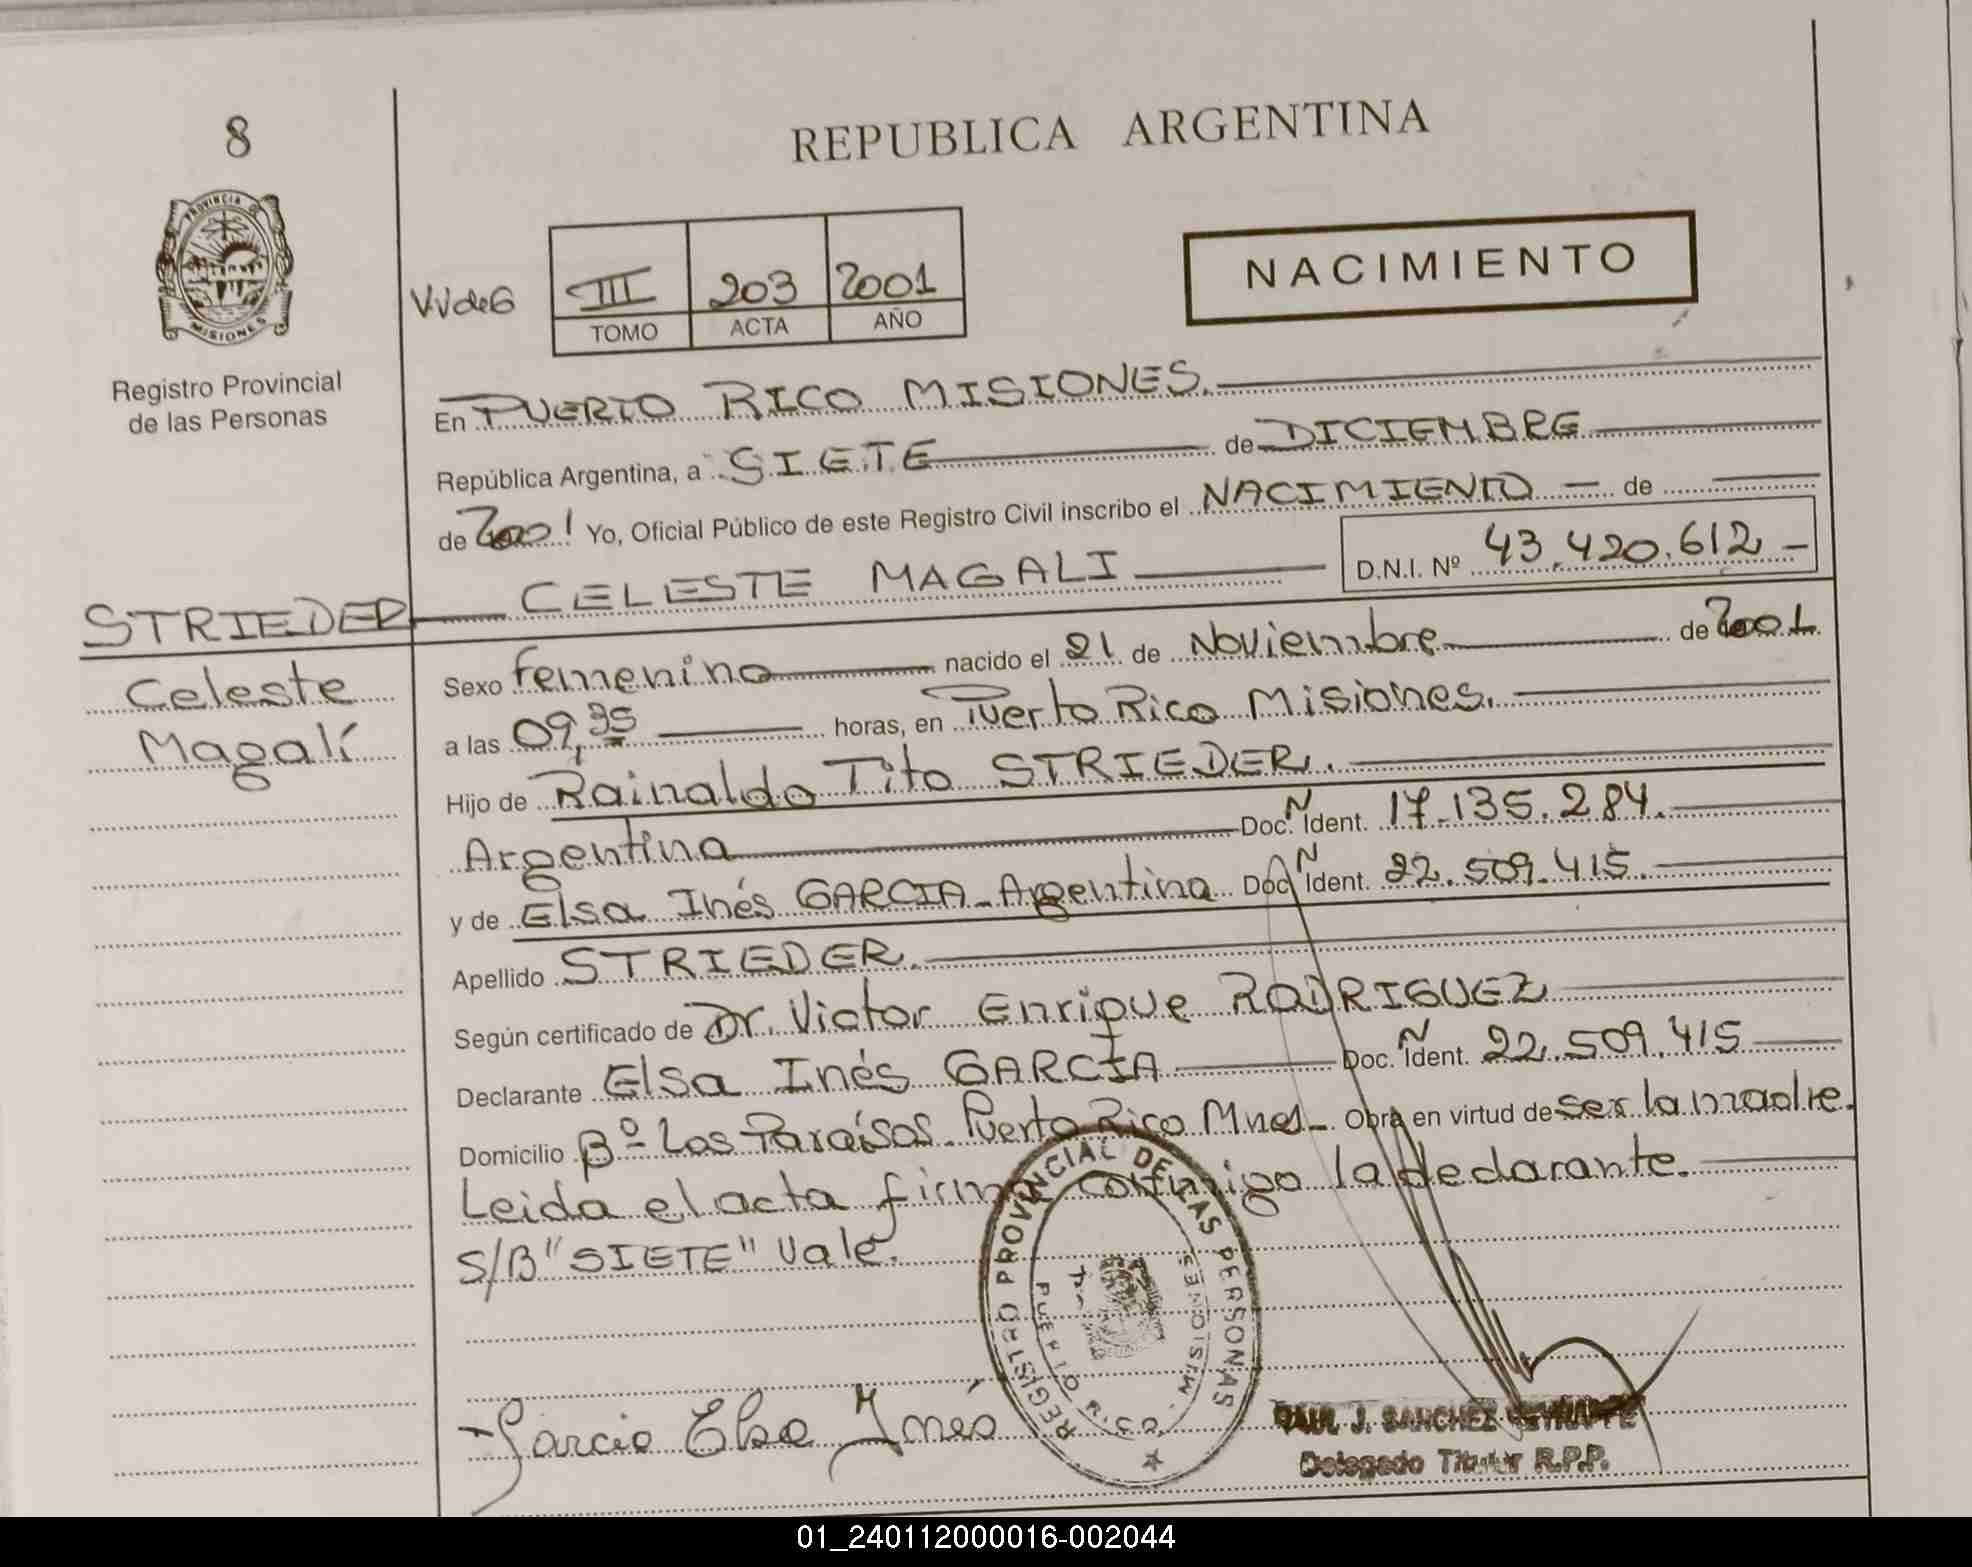 8
REPUBLICA ARGENTINA
PROVINCIA DE
MISIONES
Registro Provincial
de las Personas
NACIMIENTO
VVdeG
III 203 2001
TOMO ACTA AÑO
En PUERTO RICO MISIONES.
República Argentina, a SIETE de DICIEMBRE
de 2001 Yo, Oficial Público de este Registro Civil inscribo el NACIMIENTO de
STRIEDER CELESTE MAGALI D.N.I. Nº 43.420.612
Celeste
Magalí
Sexo femenino nacido el 21 de Noviembre de 2001
a las 09,35 horas, en Puerto Rico Misiones.
Hijo de Rainaldo Tito STRIEDER.
Argentina Doc. N Ident. 17.135.284.
y de Elsa Inés GARCIA - Argentina Doc. N Ident. 22.509.415.
Apellido STRIEDER.
Según certificado de Dr. Victor Enrique RODRIGUEZ
Declarante Elsa Inés GARCIA Doc. N Ident. 22.509.415
Domicilio Bº Los Paraísos - Puerto Rico Mnes - Obra en virtud de ser la madre.
Leida el acta firma conmigo la declarante.
S/B "SIETE" Vale.
REGISTRO PROVINCIAL DE LAS PERSONAS
PUERTO RICO - MISIONES
Garcia Elsa Inés
RAUL J. SANCHEZ
Delegado Titular R.P.P.
01_240112000016-002044